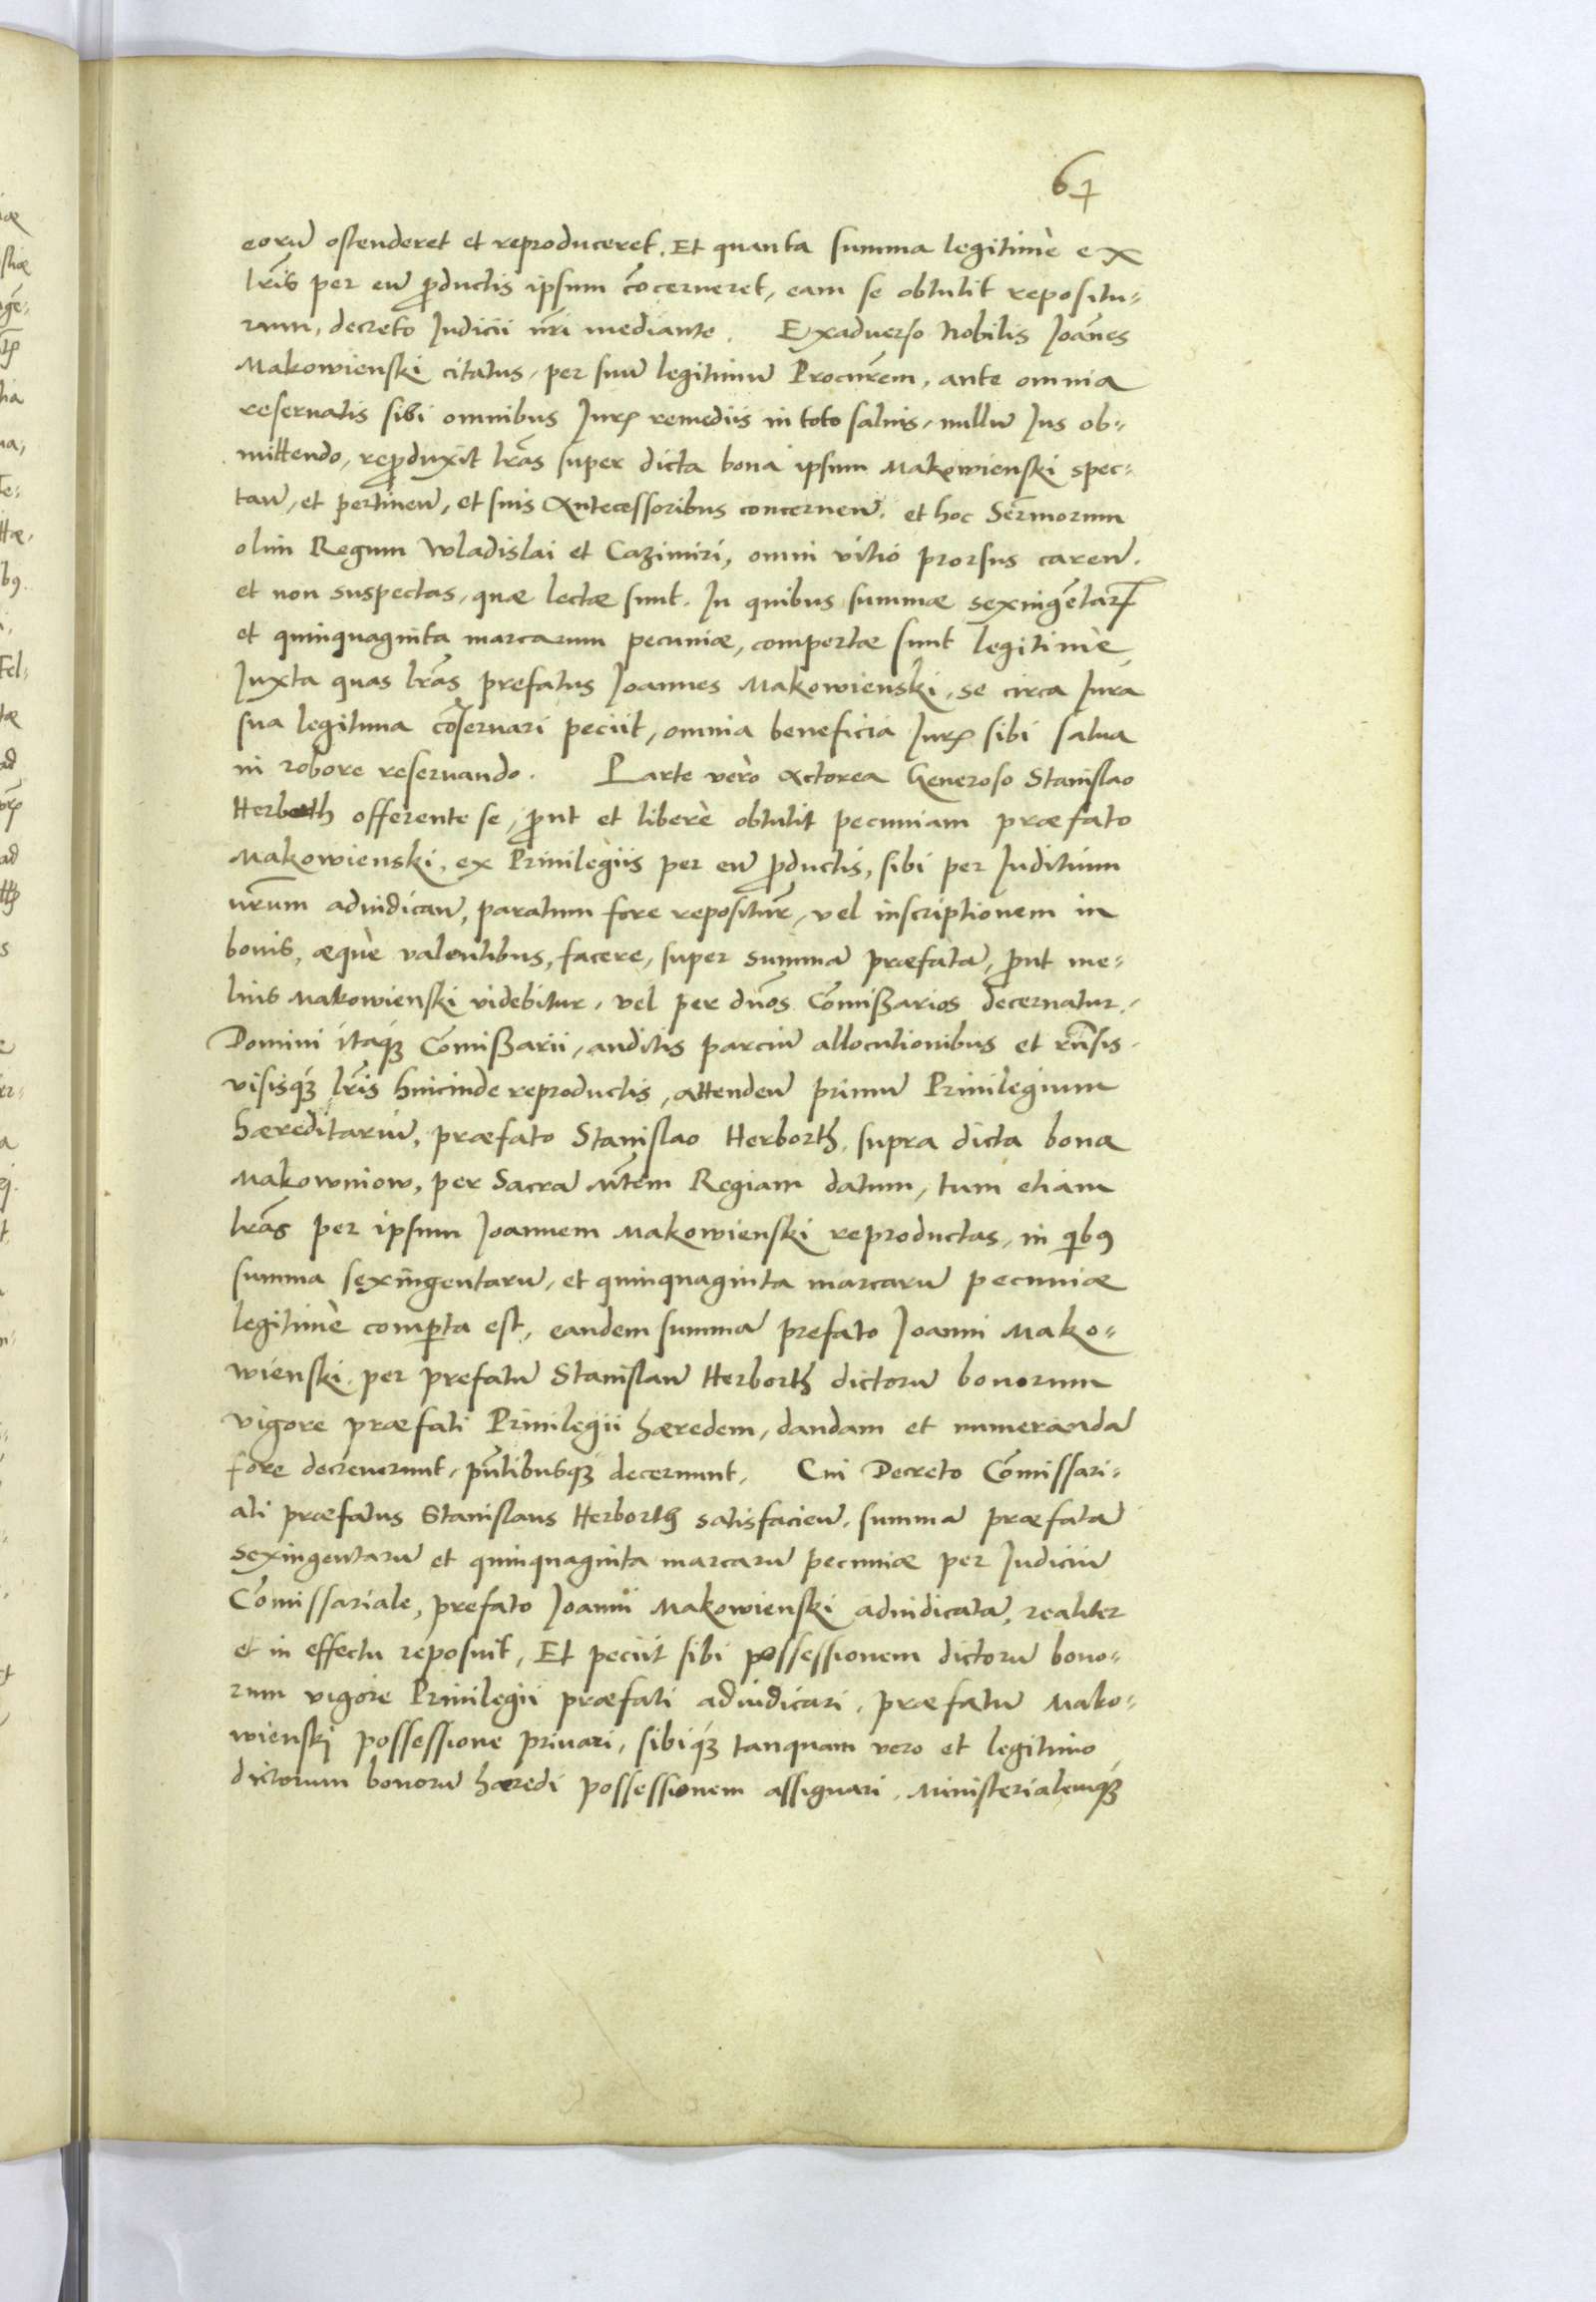 64
eorũ ostenderet et reproduceret. Et quanta summa legitimè ex
lr̃is per eũ ꝓductis ipsum cõcerneret, eam se obtulit repositu-
rum, decreto Judicii nr̃i mediante. Exaduerso Nobilis Joãnes
Makowienski citatus, per suũ legitimũ Procur̃em, ante omnia
reseruatis sibi omnibus Juris remediis in toto saluis, nullũ Jus ob-
mittendo, reꝓduxit lr̃as super dicta bona ipsum Makowienski spec-
tan̄, et pertinen̄, et suis Antecessoribus concernen̄. et hoc Ser̃morum
olim Regum Wladislai et Cazimiri, omni vitio prorsus caren̄.
et non suspectas, quæ lectæ sunt. In quibus summæ sexingẽtarꝝ
et quinquaginta marcarum pecuniæ, compertæ sunt legitimè,
Juxta quas lr̃as prefatus Joannes Makowienski, se circa Jura
sua legitima cõseruari peciit, omnia beneficia Juris sibi salua
in robore reseruando. Parte verò Actorea Generoso Stanislao
Herborth offerente se, ꝓut et liberè obtulit pecuniam præfato
Makowienski, ex Priuilegiis per eũ ꝓductis, sibi per Juditium
nr̃um adiudican̄, paratum fore repositur̃, vel inscriptionem in
bonis, æquè valentibus, facere, super summã præfatã, ꝓut me-
lius Makowienski videbitur, vel per dños Cõmissarios decernatur.
Domini itaq́ꝫ Cõmissarii, auditis parciũ allocutionibus et rñsis.
visisq́ꝫ lr̃is hincinde reproductis, attenden̄ primũ Priuilegium
hæreditariũ, præfato Stanislao Herborth, supra dicta bona
Makowniow, per Sacrã Mt̃em Regiam datum, tum etiam
lr̃as per ipsum Joannem Makowienski reproductas, in qibꝰ
summa sexingentarũ, et quinquaginta marcarũ pecuniæ
legitimè comꝑta est, eandem summã prefato Joanni Mako-
wienski per prefatũ Stanislaũ Herborth dictorũ bonorum
vigore præfati Priuilegii hæredem, dandam et numerandã
fore decreuerunt, pñtibusq́ꝫ decernunt. Cui Decreto Cõmissari-
ali præfatus Stanislaus Herborth satisfacien̄, summã præfatã
sexingentarũ et quinquaginta marcarũ pecuniæ per Judiciũ
Cõmissariale, prefato Joanni Makowienski adiudicatã, realiter
et in effectu reposuit, Et peciit sibi possessionem dictorũ bono-
rum vigore Priuilegii præfati adiudicari, præfatũ Mako-
wienskj possessione priuari, sibiq́ꝫ tanquam vero et legitimo
dictorum bonorũ hæredi possessionem assignari, Ministerialemq́ꝫ